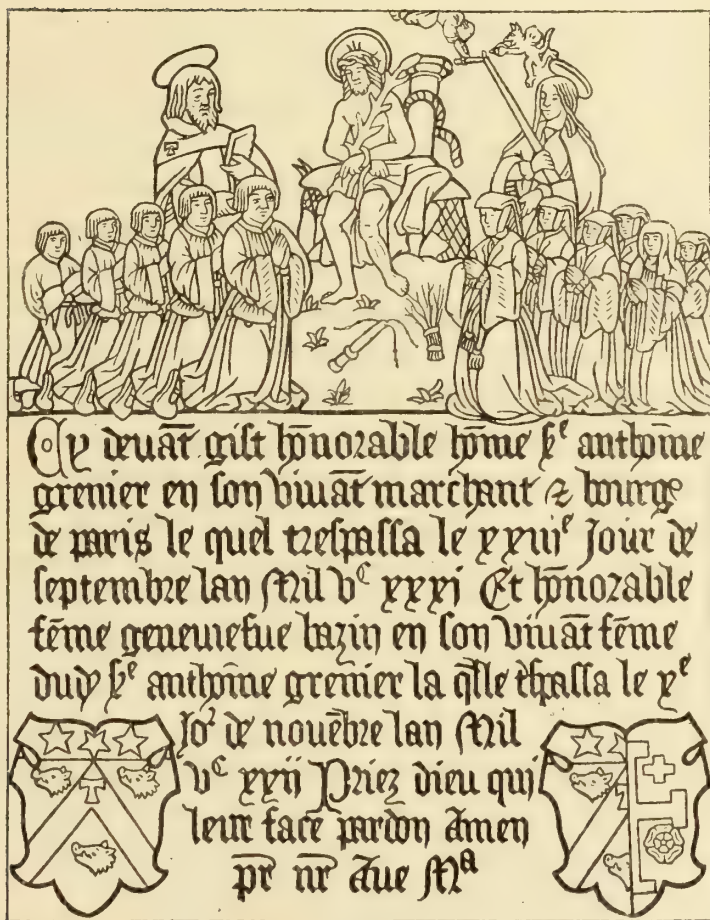 Cy deuāt gist hōnorable hōme sᵉ anthoine
grenier en son viuāt marchant & bourgs
de paris le quel trespassa le xxiiiᵉ Jour de
septembre lan Mil vᶜ xxxi Et hōnorable
fēme geneuiefue bazin en son viuāt fēme
dudᵗ sᵉ anthoine grenier la qlle tspassa le xᵉ
Joʳ de nouēbre lan Mil
vᶜ xxii Priez dieu qui
leur face pardon Amen
pr̄ nr̄ Aue Mᵃ